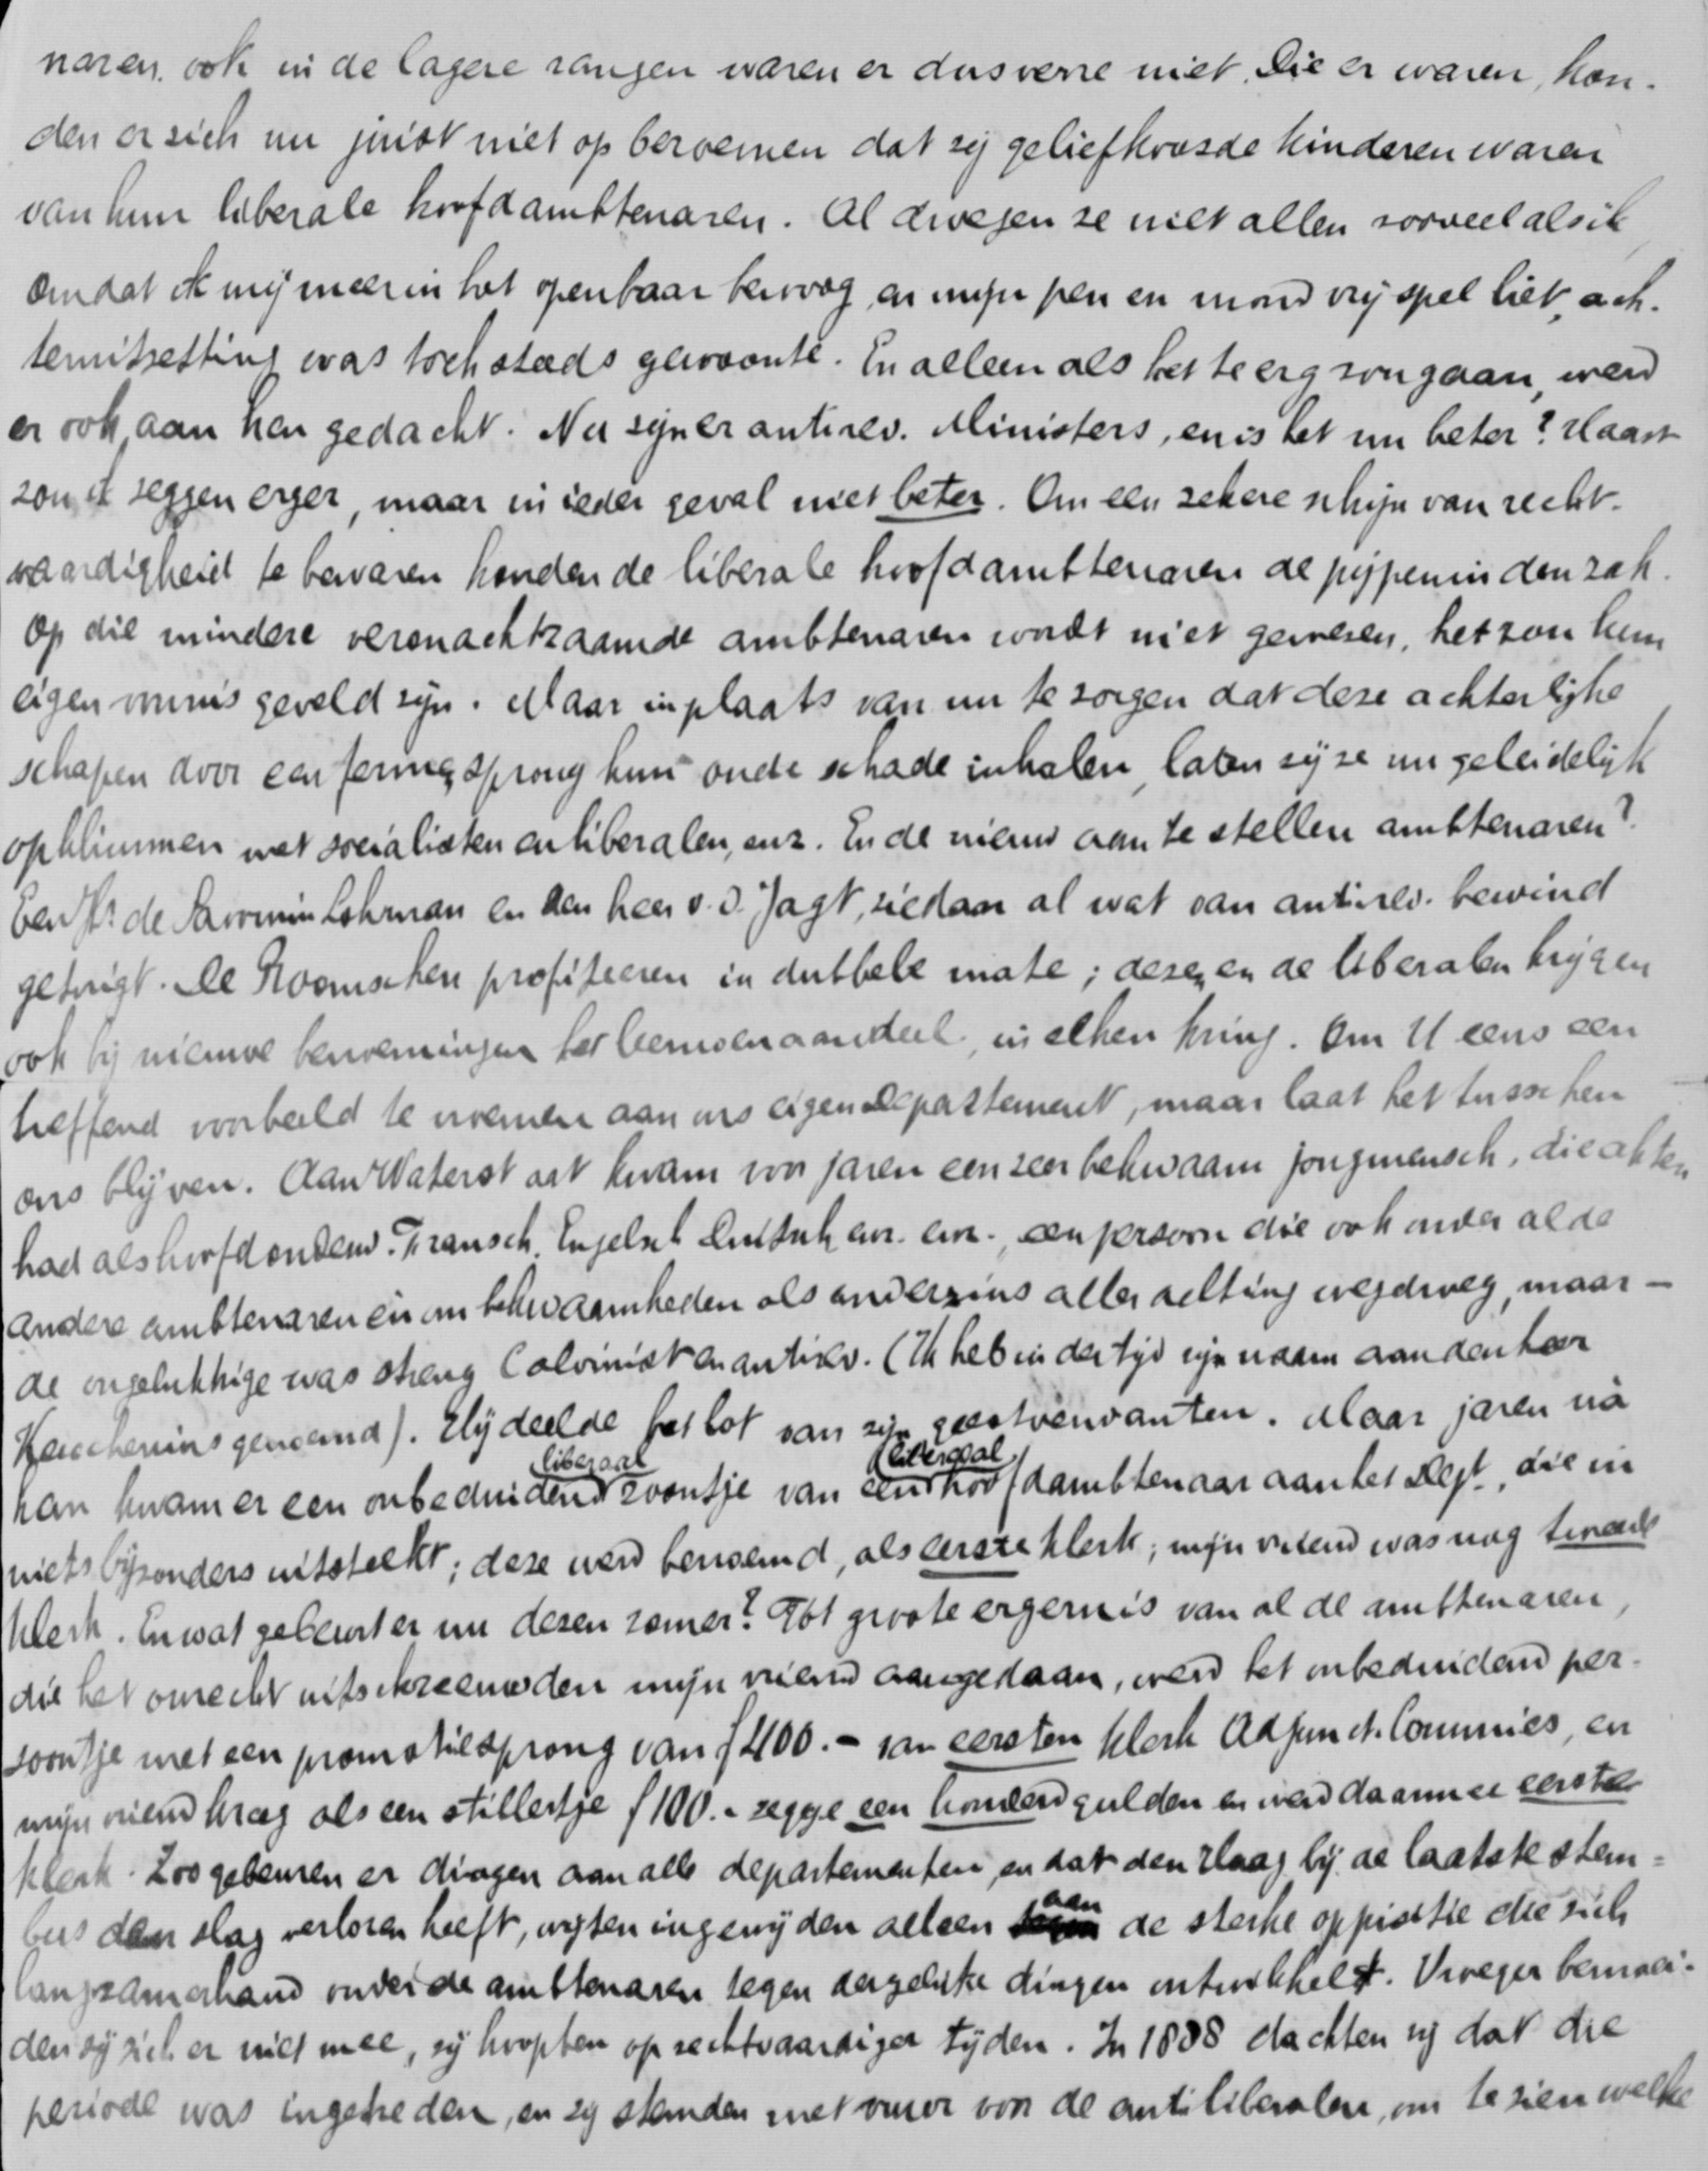 naren, ook in de lagere rangen waren er dusverre niet. Die er waren, kon-
den er zich nu juist niet op beroemen dat zij geliefkoosde kinderen waren
van hun liberale hoofdambtenaren. Al dwegen ze niet allen zooveel als ik
omdat ik mij meer in het openbaar bewoog en mijn pen en mond vrij spel liet, ach-
teruitzetting was toch steeds gewoonte. En alleen als het te erg zou gaan, werd
er ook aan hen gedacht. Nu zijn er antirev. Ministers, en is het nu beter? Haast
zou ik zeggen erger, maar in ieder geval niet beter. Om een zekere schijn van recht-
vaardigheid te bewaren houden de liberale hoofdambtenaren de pijpen in den zak.
Op die mindere veronachtzaamde ambtenaren wordt niet gewezen, het zou hun
eigen vonnis geveld zijn. Maar in plaats van nu te zorgen dat deze achterlijke
schapen door een ferme sprong hun oude schade inhalen, laten zij ze nu geleidelijk
opklimmen met socialisten en liberalen, enz. En de nieuw aan te stellen ambtenaren?
Een Hr. de Savornin Lohman en den heer v.d. Jagt, ziedaar al wat van antirev. bewind
getuigt. De Roomschen profiteeren in dubbele mate; dezen en de liberalen krijgen
ook bij nieuwe benoemingen het leeuwenaandeel, in elken kring. Om U eens een
treffend voorbeeld te noemen aan ons eigen Departement, maar laat het tusschen
ons blijven. Aan Waterst aat kwam voor jaren een zeer bekwaam jongmensch, die akten
had als hoofdonderw. Fransch, Engelsch Duitsch enz. enz., een persoon die ook onder al de
andere ambtenaren én om bekwaamheden als anderzins aller achting wegdroeg, maar -
de ongelukkige was streng Calvinist en antirev. (Ik heb indertijd zijn naam aan den heer
Keuchenius genoemd). Hij deelde het lot van zijn geestverwanten. Maar jaren ná
liberaal liberaal
han kwam er een onbeduidend zoontje van een hoofdambtenaar aan het Dept., die in
niets bijzonders uitsteekt; deze werd benoemd, als eerste klerk; mijn vriend was nog tweede
klerk. En wat gebeurt er nu dezen zomer? Tot groote ergernis van al de ambtenaren,
die het onrecht uitschreeuwden mijn vriend aangedaan, werd het onbeduidend per-
soontje met een promotiesprong van f 400.- van eersten klerk Adjunct-Commies, en
mijn vriend kreeg als een stillertje f 100.- zegge een honderd gulden en werd daarmee eerste
klerk. Zoo gebeuren er dingen aan alle departementen, en dat den Haag bij de laatste stem=
aan
bus den slag verloren heeft, wijten ingewijden alleen de sterke oppisitie die zich
langzamerhand onder de ambtenaren tegen dergelijke dingen ontwikkelt. Vroeger bemoei-
den zij zich er niet mee, zij hoopten op rechtvaardiger tijden. In 1888 dachten zij dat die
periode was ingetreden, en zij stemden met vuur voor de antiliberalen, om te zien welke